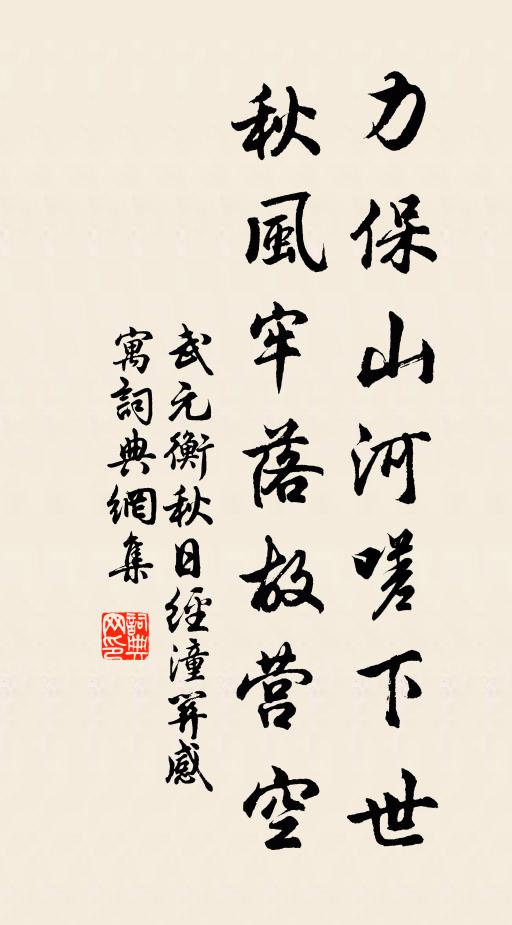 力保山河嗟下世
秋風牢落故营空
武元衡秋日經潼関感
寓詞典網集
詞典网印